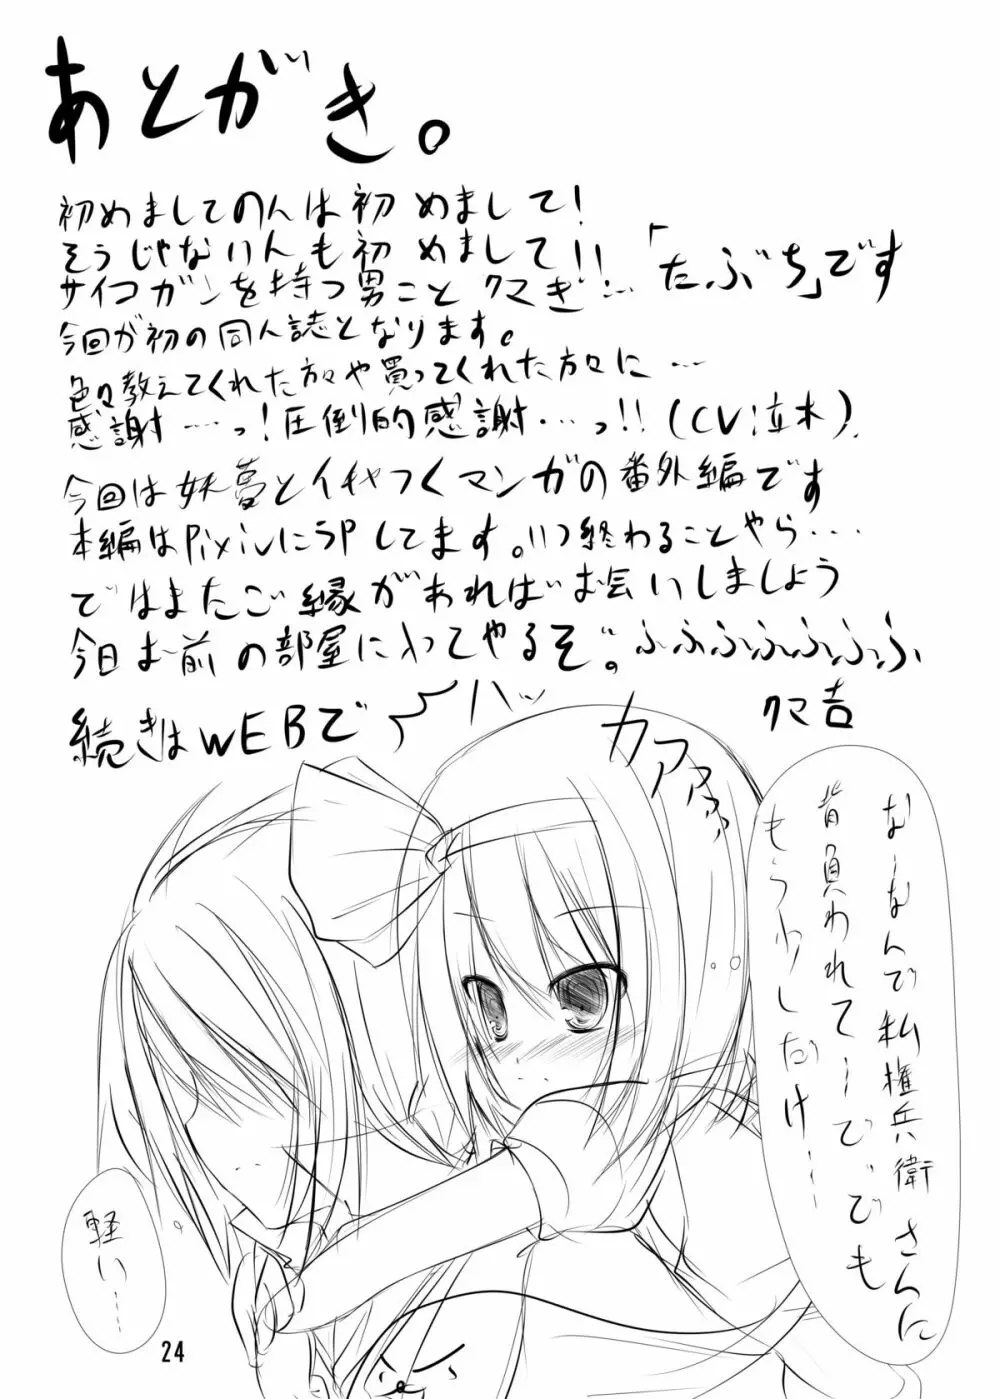 あとがき。
初めましてのんは初めまして!
そうじゃない人も初めまして!!「たぶち」です
サイコガンを持つ男こと クマ吉!…
今回が初の同人誌となります。
色々教えてくれた方々や買ってくれた方々に…
感謝…っ!圧倒的感謝…っ!!(CV:立木)
今回は妖夢とイチャつくマンガの番外編です
本編はPixivにうPしてます。いつ終わることやら…
ではまたご縁があればお会いしましょう
今日お前の部屋に入ってやるぞ。ふふふふふふふ
続きはWEBで
クマ吉
ハッ
カアァァ
なーなんで私権兵衛さんに
背負われてーひ、でも
もう少しだけ…
軽い…
24